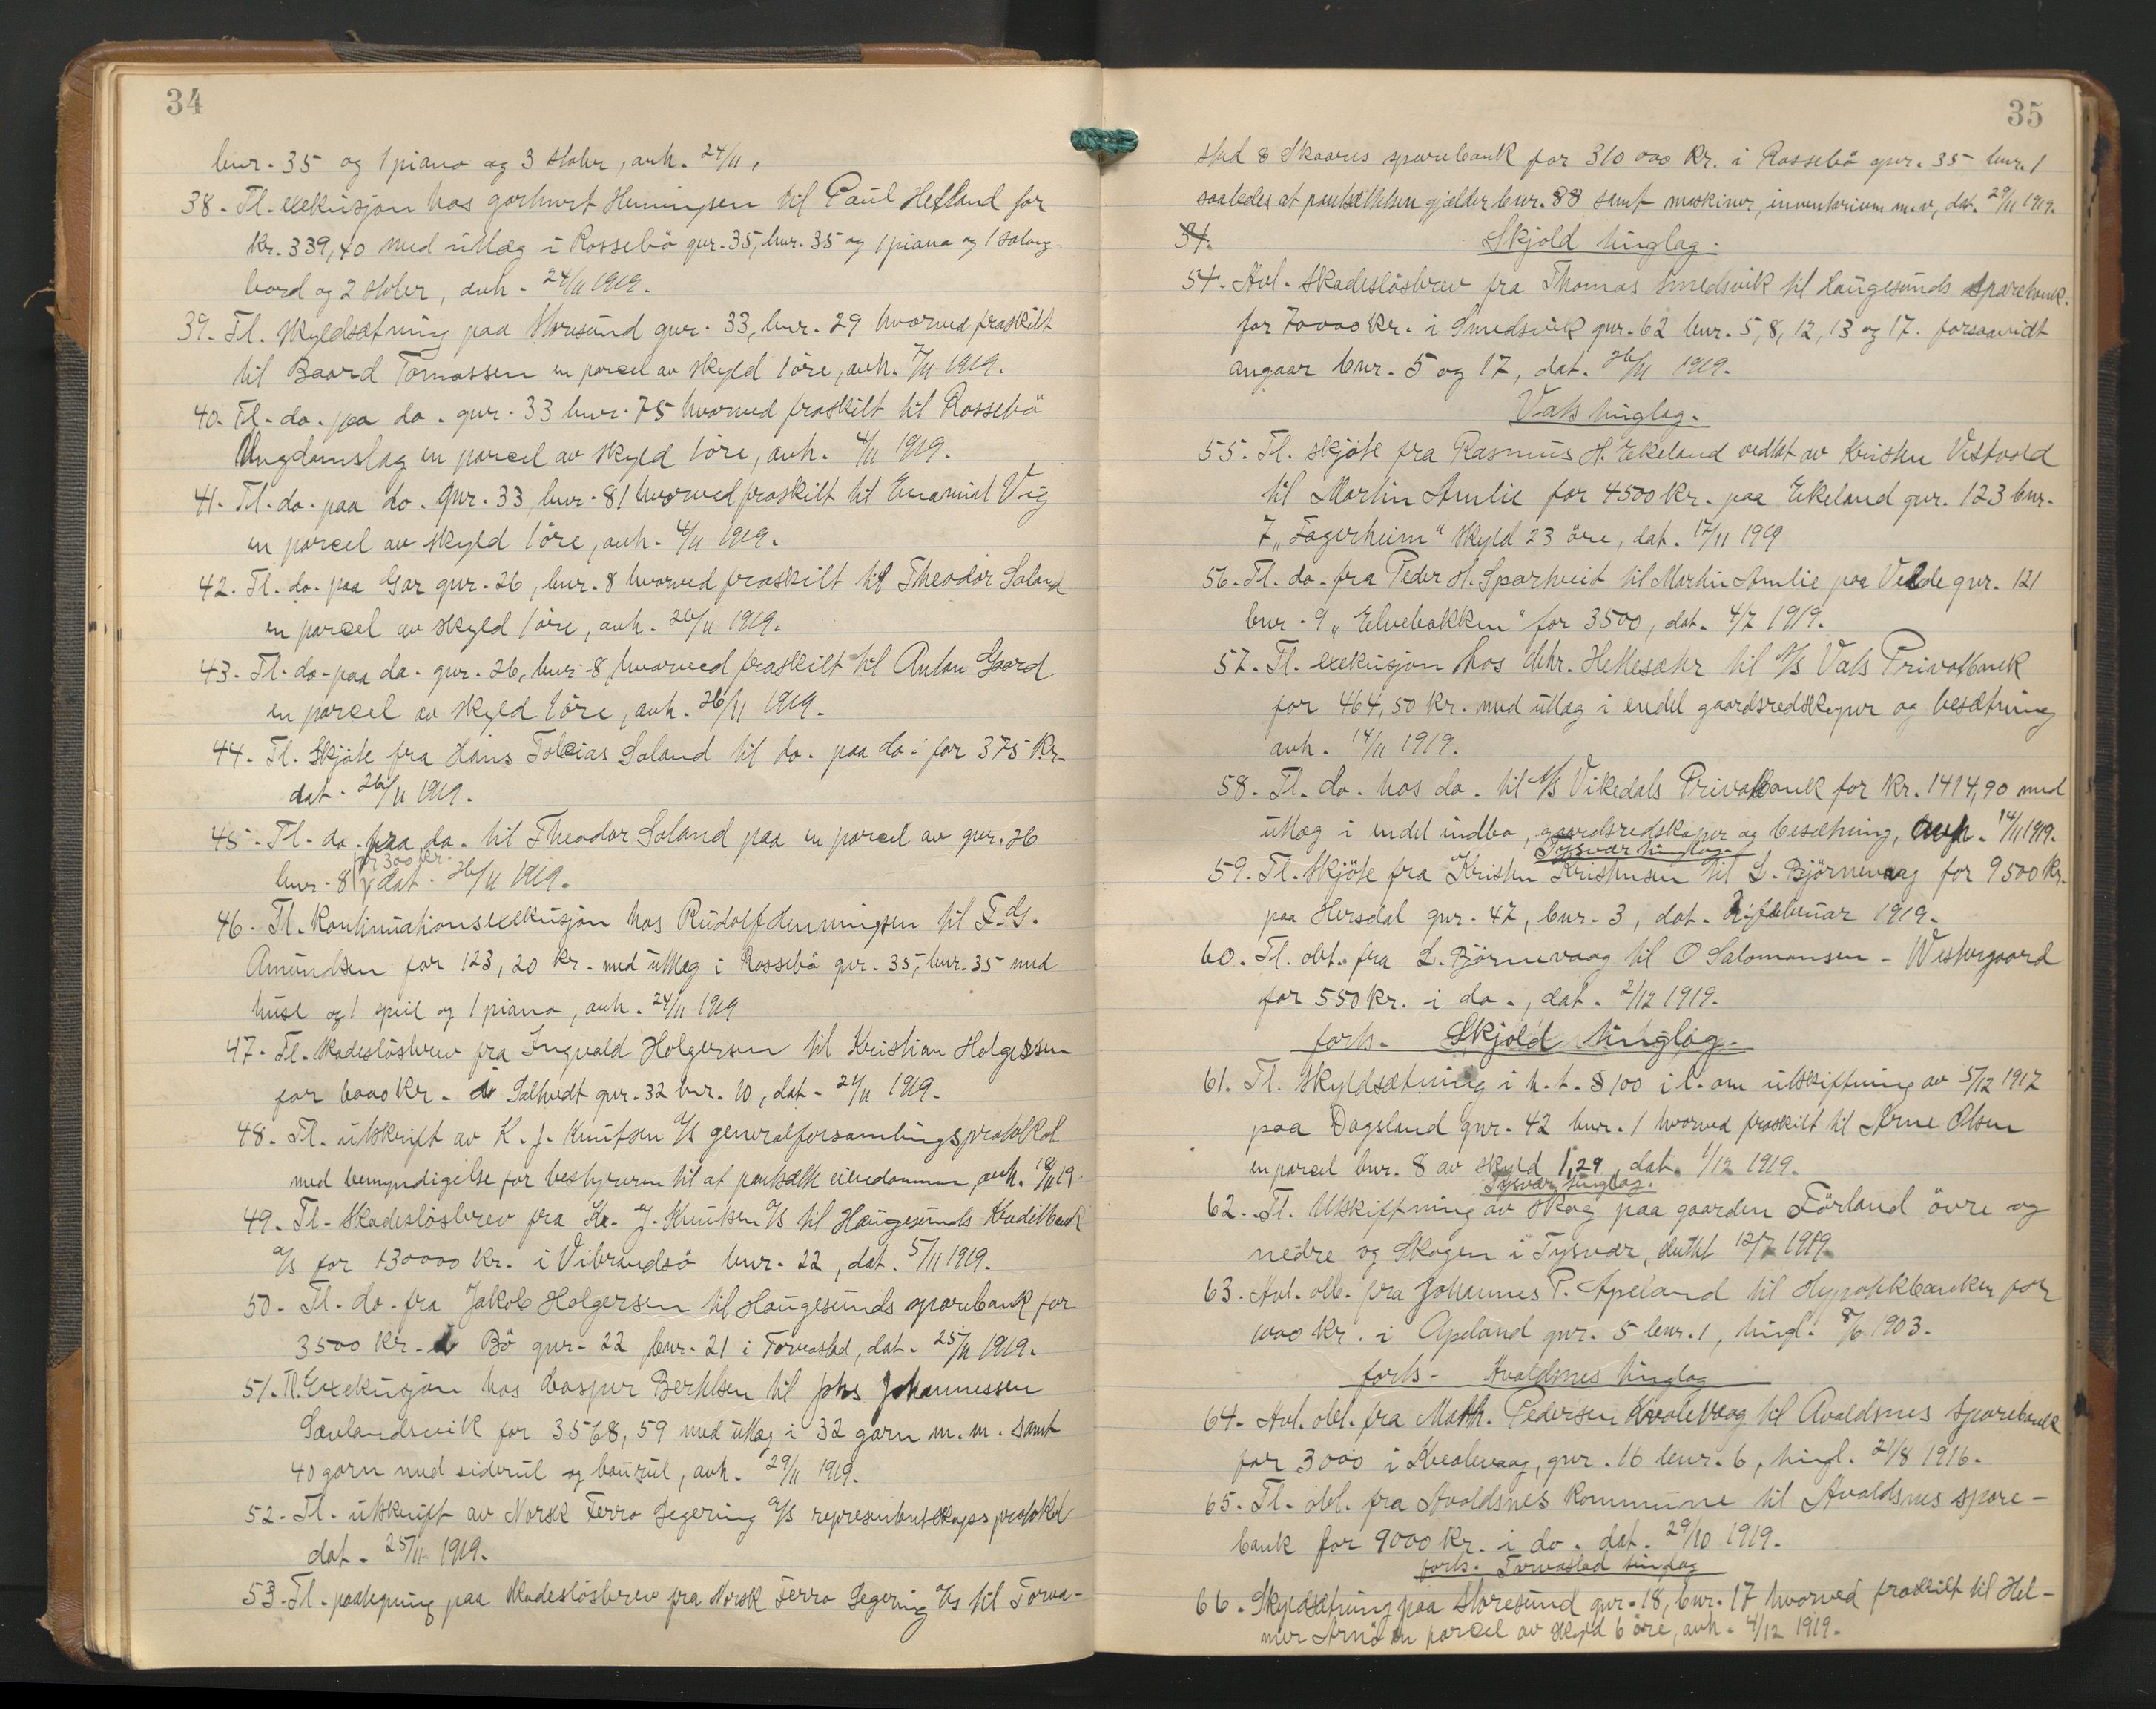 34
bnr. 35 og 1 piano og 3 stoler, avh. 24/11.
38. Tl. exekusjon hos garhurt Henningsen til Paul Hetland for
kr. 339,40 med utlæg i Rossebö gnr. 35, bnr. 35 og 1 piano og 1 salong
bord og 2 stoler, avh. 24/11 1919.
39. Tl. skyldsætning paa Storesund gnr. 33, bnr. 29 hvorved fraskilt
til Baard Tomassen en parcel av skyld 1 öre, avh. 7/11 1919.
40. Tl. do. paa do. gnr. 33 bnr. 75 hvorved fraskilt til Rossebö
Ungdomslag en parcel av skyld 1 öre, avh. 4/11 1919.
41. Tl. do. paa do. gnr. 33, bnr. 81 hvorved fraskilt til Emanuel Vig
en parcel av skyld 1 öre, avh. 4/11 1919.
42. Tl. do. paa Gar gnr. 26, bnr. 8 hvorved fraskilt til Theodor Saland
en parcel av skyld 1 öre, avh. 26/11 1919.
43. Tl. do. paa do. gnr. 26, bnr. 8, hvorved fraskilt til Anton Gaard
en parcel av skyld 1 öre, avh. 26/11 1919.
44. Tl. Skjöte fra Hans Tobias Saland til do. paa do. for 375 Kr.
dat. 26/11 1919.
45. Tl. do. fra do. til Theodor Saland paa en parcel av gnr. 26
for 300 kr.
bnr. 8, dat. 26/11 1919.
46. Tl. Kontinuationsexekusjon hos Rudolf Henningsen til F. G.
Amundsen for 123,20 kr. med utlæg i Rossebö gnr. 35, bnr. 35 med
huse og 1 speil og 1 piano, avh. 24/11 1919
47. Tl. skadeslösbrev fra Ingvald Holgersen til Kristian Holgersen
for 6000 Kr. i Salhvedt gnr. 32 bnr. 10, dat. 24/11 1919.
48. Tl. utskrift av K. J. Knutsen A/S generalforsamlingsprotokol
med bemyndigelse for bestyreren til at pantsætte eiendommen, avh. 18/11 19.
49. Tl. Skadeslösbrev fra Kr. J. Knutsen A/S til Haugesunds Kreditbank
A/S for 130000 Kr. i Vibrandsö bnr. 22, dat. 5/11 1919.
50. Tl. do. fra Jakob Holgersen til Haugesunds sparebank for
3500 Kr. i Bö gnr. 22 bnr. 21 i Torvastad, dat. 25/11 1919.
51. Tl. Exekusjon hos Casper Bertelsen til Johs Johannessen
Sævlandsvik for 3568,59 med utlæg i 32 garn m. m. samt
40 garn med siderul og baugrul, avh. 29/11 1919.
52. Tl. utskrift av Norsk Ferro Legering A/S representantskapsprotokol
dat. 25/11 1919.
53. Tl. paategning paa skadeslösbrev fra Norsk Ferro Legering A/S til Torva-
35
stad & Skaares sparebank for 310 000 Kr. i Rossebö gnr. 35 bnr. 1
saaledes at pantsættelsen gjælder bnr. 88 samt maskiner, inventarium m.v, dat. 29/11 1919.
54. Skjold tinglag.
54. Avl. skadeslösbrev fra Thomas Smedsvik til Haugesunds Sparebank.
for 70000 Kr. i Smedsvik gnr. 62 bnr. 5, 8, 12, 13 og 17. forsaavidt
angaar bnr. 5 og 17, dat. 26/11 1919.
Vats tinglag.
55. Tl. skjöte fra Rasmus H. Ekeland vedtat av Kristen Vestvold
til Martin Amlie for 4500 Kr. paa Ekeland gnr. 123 bnr.
7 „Fagerheim“ skyld 23 öre, dat. 17/11 1919
56. Tl. do. fra Peder H. Spartveit til Martin Amlie paa Velde gnr. 121
bnr. 9 „Elvebakken“ for 3500, dat. 4/7 1919.
57. Tl. exekusjon hos Chr. Hettesæter til A/S Vats Privatbank
for 464,50 Kr. med utlæg i endel gaardsredskaper og besætning
avh. 14/11 1919.
58. Tl. do. hos do. til A/S Vikedals Privatbank for Kr. 1414,90 med
utlæg i endel indbo, gaardsredskaper og besætning, avh. 14/11 1919.
Tysvær tinglag.
59. Tl. skjöte fra Kristen Kristensen til L. Björnevaag for 9500 kr.
paa Hersdal gnr. 47, bnr. 3, dat. 2. februar 1919.
60. Tl. obl. fra L. Björnevaag til O Salomonsen - Westergaard
for 550 Kr. i do., dat. 2/12 1919.
forts. Skjold tinglag.
61. Tl. skyldsætning i h. t. § 100 i l. om utskiftning av 5/12 1917
paa Dagsland gnr. 42 bnr. 1 hvorved fraskilt til Arne Olsen
en parcel bnr. 8 av skyld 1,29, dat. 1/12 1919.
Tysvær tinglag.
62. Tl. Utskiftning av skog paa gaarden Förland övre og
nedre og Skogen i Tysvær, sluttet 12/7 1919.
63. Avl. obl. fra Johannes P. Apeland til Hypotekbanken for
1000 Kr. i Apeland gnr. 5 bnr. 1, tingl. 8/6 1903.
forts. Avaldsnes tinglag
64. Avl. obl. fra Math. Pedersen Kvalevaag til Avaldsnes Sparebank
for 3000 i Kvalevaag, gnr. 16 bnr. 6, tingl. 21/8 1916.
65. Tl. obl. fra Avaldsnes Kommune til Avaldsnes spare-
bank for 9000 Kr. i do. dat. 29/10 1919.
forts. Torvastad tinglag
66. Skyldsætning paa Storesund gnr. 18, bnr. 17 hvorved fraskilt til Hel-
mer Arnö en parcel av skyld 6 öre, avh. 4/12 1919.